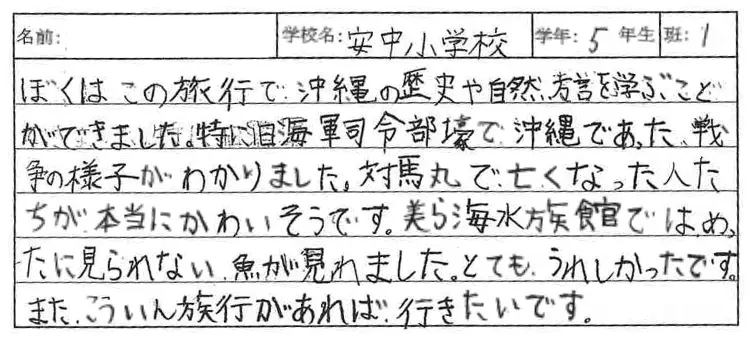 名前: 学校名: 安中小学校 学年: 5 年生 班: 1
ぼくはこの旅行で、沖縄の歴史や自然、方言を学ぶこと
ができました。特に旧海軍司令部壕で沖縄であった、戦
争の様子がわかりました。対馬丸で亡くなった人た
ちが本当にかわいそうです。美ら海水族館では、めっ
たに見られない魚が見れました。とても、うれしかったです。
また、こういん族行があれば、行きたいです。